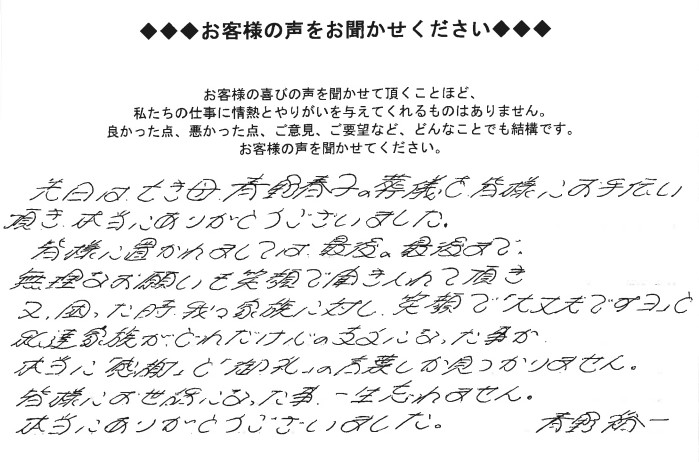 ◆◆◆お客様の声をお聞かせください◆◆◆
お客様の喜びの声を聞かせて頂くことほど、
私たちの仕事に情熱とやりがいを与えてくれるものはありません。
良かった点、悪かった点、ご意見、ご要望など、どんなことでも結構です。
お客様の声を聞かせてください。
先日は、亡き母、青野春子の葬儀を皆様にお手伝い
頂き、本当にありがとうございました。
皆様に置かれましては、最後の最後まで、
無理なお願いも笑顔で聞き入れて頂き
又、困った時、我つ家族に対し、笑顔で「大丈夫ですヨ」と
私達家族が、どれだけ心の支えになった事か
本当に「感謝」と「御礼」の言葉しか見つかりません。
皆様にお世話になった事、一生忘れません。
本当にありがとうございました。 青野 一